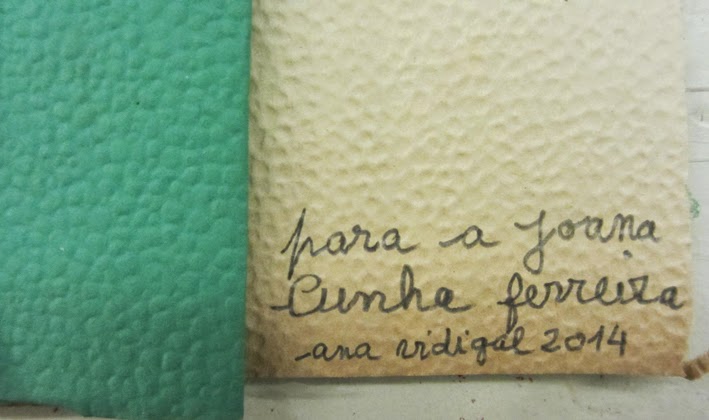 para a joana
Cunha ferreira
ana vidigal 2014